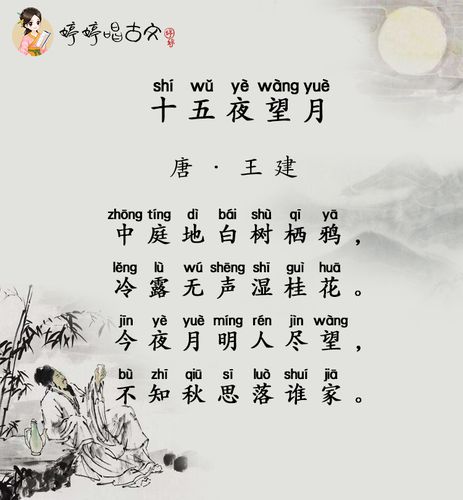 婷婷唱古文
shí wǔ yè wàng yuè
十五夜望月
唐·王建
zhōng tíng dì bái shù qī yā
中庭地白树栖鸦，
lěng lù wú shēng shī guì huā
冷露无声湿桂花。
jīn yè yuè míng rén jìn wàng
今夜月明人尽望，
bù zhī qiū sī luò shuí jiā
不知秋思落谁家。